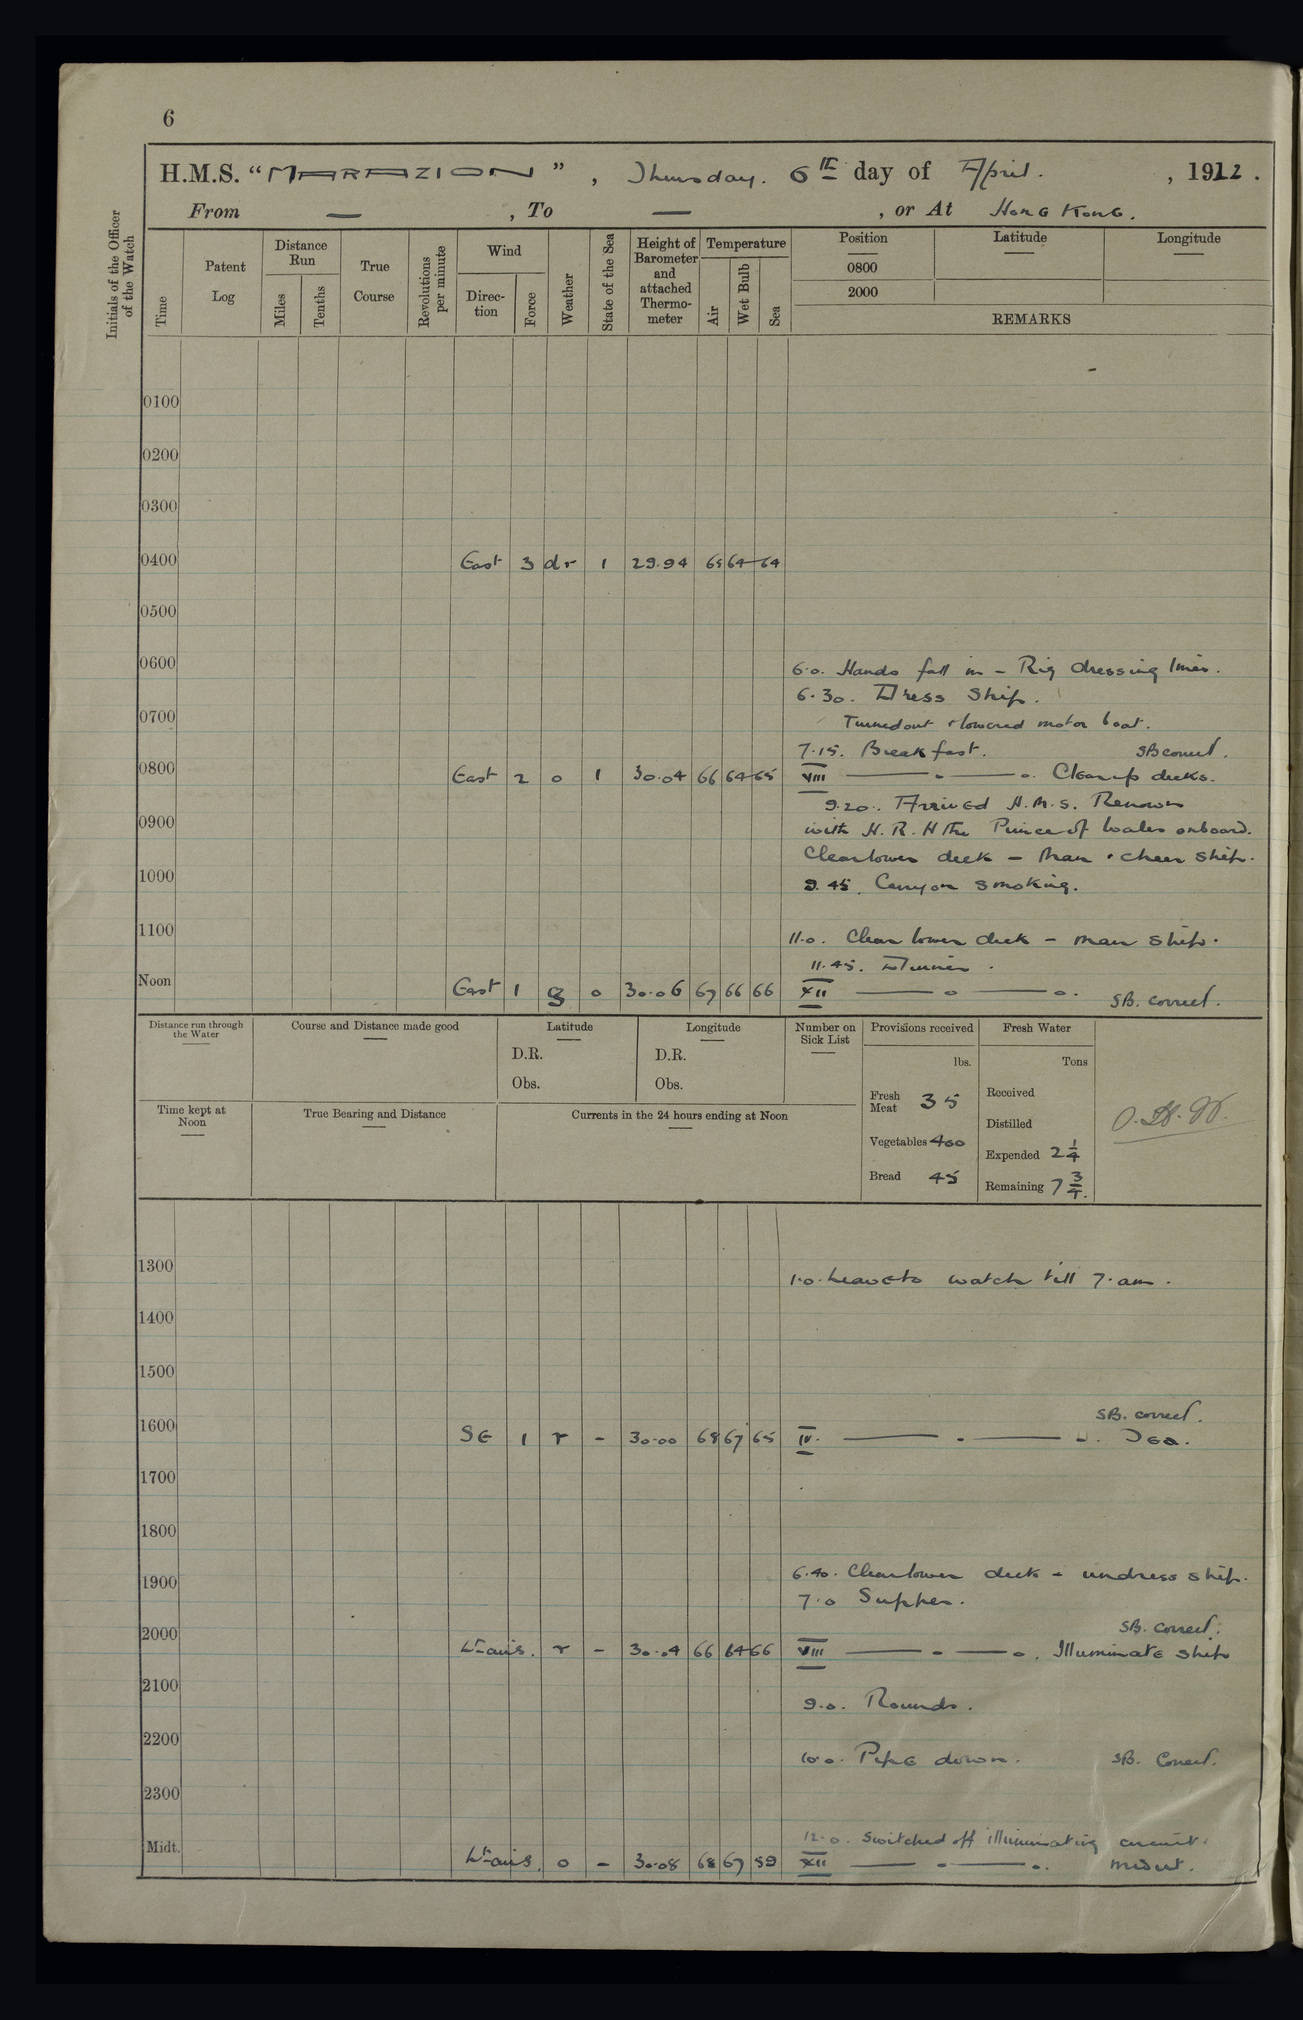 6
H.M.S. "MARAZION", Thursday. 6th day of April. , 1922.
From — , To — , or At Hong Kong.
Initials of the Officer of the Watch
Time
Patent Log
Distance Run
Miles
Tenths
True Course
Revolutions per minute
Wind
Direc-tion
Force
Weather
State of the Sea
Height of Barometer and attached Thermo-meter
Temperature
Air
Wet Bulb
Sea
Position
0800
2000
Latitude
Longitude
REMARKS
0100
0200
0300
0400 East 3 dr 1 29.94 65 64 64
0500
0600 6.0. Hands fall in – Rig dressing lines.
6.30. Dress Ship.
0700 Turned out & lowered motor boat.
7.15. Breakfast. SB correct.
0800 East 2 o 1 30.04 66 64 65 VIII — o — o. Clean up decks.
9.20. Arrived H.M.S. Renown
0900 with H.R.H The Prince of Wales onboard.
Clear lower deck – Man & cheer ship.
1000 9.45. Carry on smoking.
1100 11.0. Clear lower deck – man ship.
11.45. Dinner.
Noon East 1 g 0 30.06 67 66 66 XII — o — o. SB. correct.
Distance run through the Water
Course and Distance made good
Latitude
D.R.
Obs.
Longitude
D.R.
Obs.
Number on Sick List
Provisions received
lbs.
Fresh Meat 35
Vegetables 400
Bread 45
Fresh Water
Tons
Received
Distilled
Expended 2 1/4
Remaining 7 3/4.
Time kept at Noon
True Bearing and Distance
Currents in the 24 hours ending at Noon
1300 1.0. Leave to watch till 7.am.
1400
1500
SB. correct.
1600 SE 1 r – 30.00 68 67 65 IV. — o — o. Tea.
1700
1800
6.40. Clear lower deck – undress ship.
1900 7.0 Supper.
SB. correct.
2000 Lt airs. r – 30.04 66 64 66 VIII — o — o. Illuminate ship
2100 9.0. Rounds.
2200 10.0. Pipe down. SB. Correct.
2300
12.0. Switched off illuminating circuit.
Midt. Lt airs. o – 30.08 68 67 59 XII — o — o.